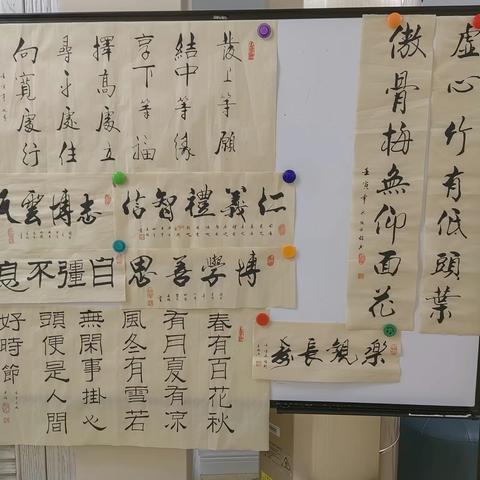 虛心竹有低頭葉
傲骨梅無仰面花
壬寅年
發上等願
結中等緣
享下等福
擇高處立
尋平處住
向寬處行
仁義禮智信
志博雲
博學善思
自彊不息
樂觀長壽
春有百花秋
有月夏有凉
風冬有雪若
無閑事掛心
頭便是人間
好時節